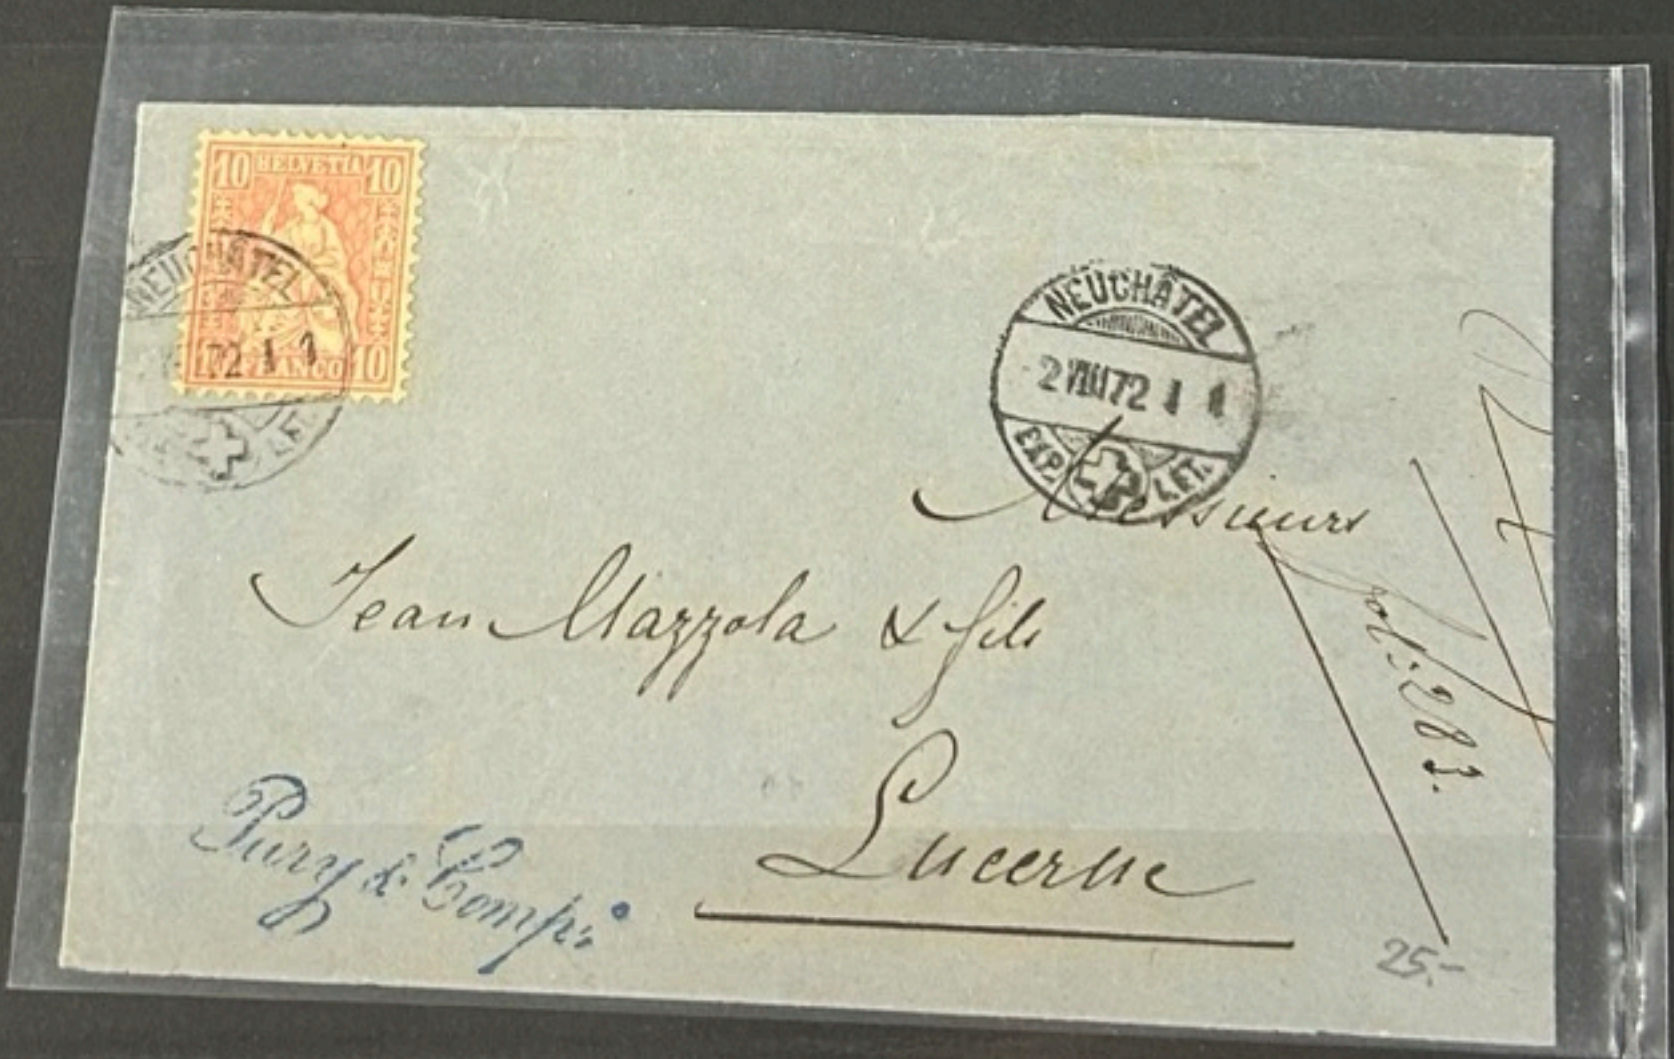 10 HELVETIA 10
10 FRANCO 10
NEUCHÂTEL
72 1 1
LET.
NEUCHÂTEL
2 VIII 72 1 1
EXP. LET.
Messieurs
Jean Mazzola & fils
Lucerne
Pury & Comp:
fol: 283.
25.-